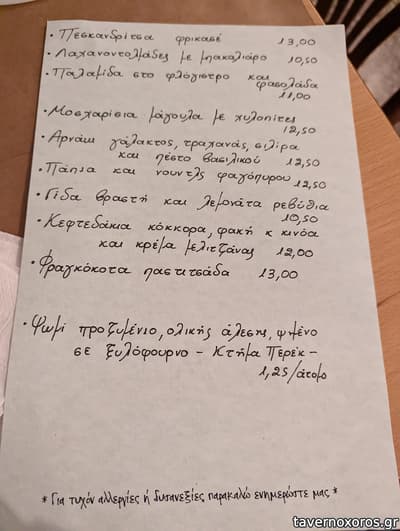 · Πεσκανδρίτσα φρικασέ 13,00
· Λαχανοντολμάδες με μπακαλιάρο 10,50
· Παλαμίδα στο φλόγιστρο και φασολάδα
11,00
· Μοσχαρίσια μάγουλα με χυλοπίτες
12,50
· Αρνάκι γάλακτος, τραχανάς, σιλίρα
και πέστο βασιλικού 12,50
· Πάπια και νουντλς φαγόπυρου
12,50
· Γίδα βραστή και λεμονάτα ρεβύθια
10,50
· Κεφτεδάκια κόκκορα, φακή κ κινόα
και κρέμα μελιτζάνας 12,00
· Φραγκόκοτα παστιτσάδα 13,00
· Ψωμί προζυμένιο, ολικής άλεσης, ψημένο
σε ξυλόφουρνο - Κτήμα Περέκ -
1,25/άτομο
* Για τυχόν αλλεργίες ή δυσανεξίες παρακαλώ ενημερώστε μας *
tavernoxoros.gr